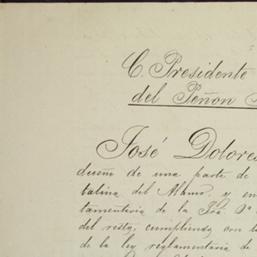 C. Presidente
del Peñon
José Dolores
dueño de una parte de
talina del Alamo, y en
tamentaria de la Sra. Da.
del resto, cumpliendo con
de la ley reglamentaria de